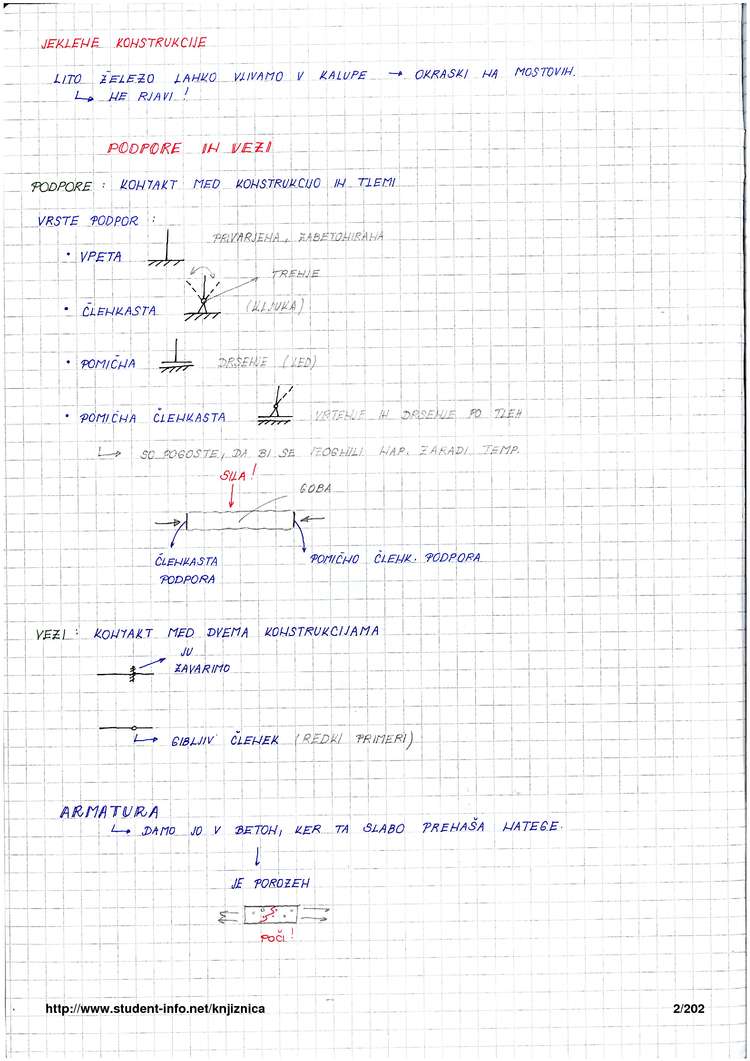 JEKLENE KONSTRUKCIJE
LITO ŽELEZO LAHKO VLIVAMO V KALUPE → OKRASKI NA MOSTOVIH.
↳ NE RJAVI!
PODPORE IN VEZI
PODPORE: KONTAKT MED KONSTRUKCIJO IN TLEMI
VRSTE PODPOR:
PRIVARJENA, ZABETONIRANA
• VPETA
TRENJE
• ČLENKASTA (KLJUKA)
• POMIČNA DRSENJE (LED)
• POMIČNA ČLENKASTA VRTENJE IN DRSENJE PO TLEH
↳ SO POGOSTE, DA BI SE IZOGNILI NAP. ZARADI TEMP.
SILA!
GOBA
ČLENKASTA PODPORA
POMIČNO ČLENK. PODPORA
VEZI: KONTAKT MED DVEMA KONSTRUKCIJAMA
JU
ZAVARIMO
↳ GIBLJIV ČLENEK (REDKI PRIMERI)
ARMATURA
↳ DAMO JO V BETON, KER TA SLABO PRENAŠA NATEGE.
↓
JE POROZEN
POČI!
http://www.student-info.net/knjiznica 2/202